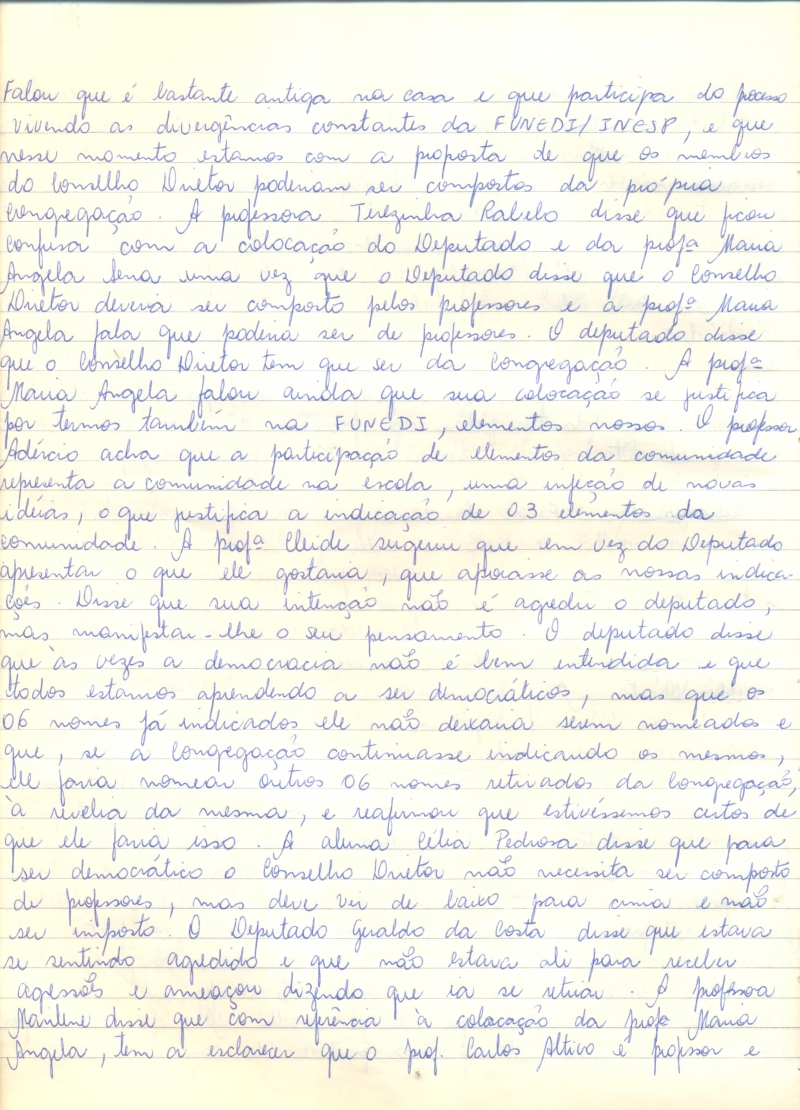 Falou que é bastante antiga na casa e que participa do processo
vivendo as divergências constantes da FUNEDI/INESP, e que
nesse momento estamos com a proposta de que os membros
do Conselho Diretor poderiam ser compostos da própria
Congregação. A professora Terezinha Rabelo disse que ficou
confusa com a colocação do Deputado e da profª Maria
Angela Sena uma vez que o Deputado disse que o Conselho
Diretor deveria ser composto pelos professores e a profª Maria
Angela fala que poderia ser de professores. O deputado disse
que o Conselho Diretor tem que ser da Congregação. A profª
Maria Angela falou ainda que sua colocação se justifica
por termos também na FUNEDI, elementos nossos. O professor
Adércio acha que a participação de elementos da comunidade
representa a comunidade na escola, uma injeção de novas
idéias, o que justifica a indicação de 03 elementos da
comunidade. A profª Cleide sugeriu que em vez do Deputado
apresentar o que ele gostaria, que apoiasse as nossas indica-
ções. Disse que sua intenção não é agredir o deputado,
mas manifestar-lhe o seu pensamento. O deputado disse
que às vezes a democracia não é bem entendida e que
todos estamos aprendendo a ser democráticos, mas que os
06 nomes já indicados ele não deixaria serem nomeados e
que, se a Congregação continuasse indicando os mesmos,
ele faria nomear outros 06 nomes retirados da Congregação,
à revelia da mesma, e reafirmou que estivéssemos certos de
que ele faria isso. A aluna Célia Pedrosa disse que para
ser democrático o Conselho Diretor não necessita ser composto
de professores, mas deve vir de baixo para cima e não
ser imposto. O Deputado Geraldo da Costa disse que estava
se sentindo agredido e que não estava ali para receber
agessões e ameaçou dizendo que ia se retirar. A professora
Marilene disse que com referência à colocação da profª Maria
Angela, tem a esclarecer que o prof. Carlos Altivo é professor e